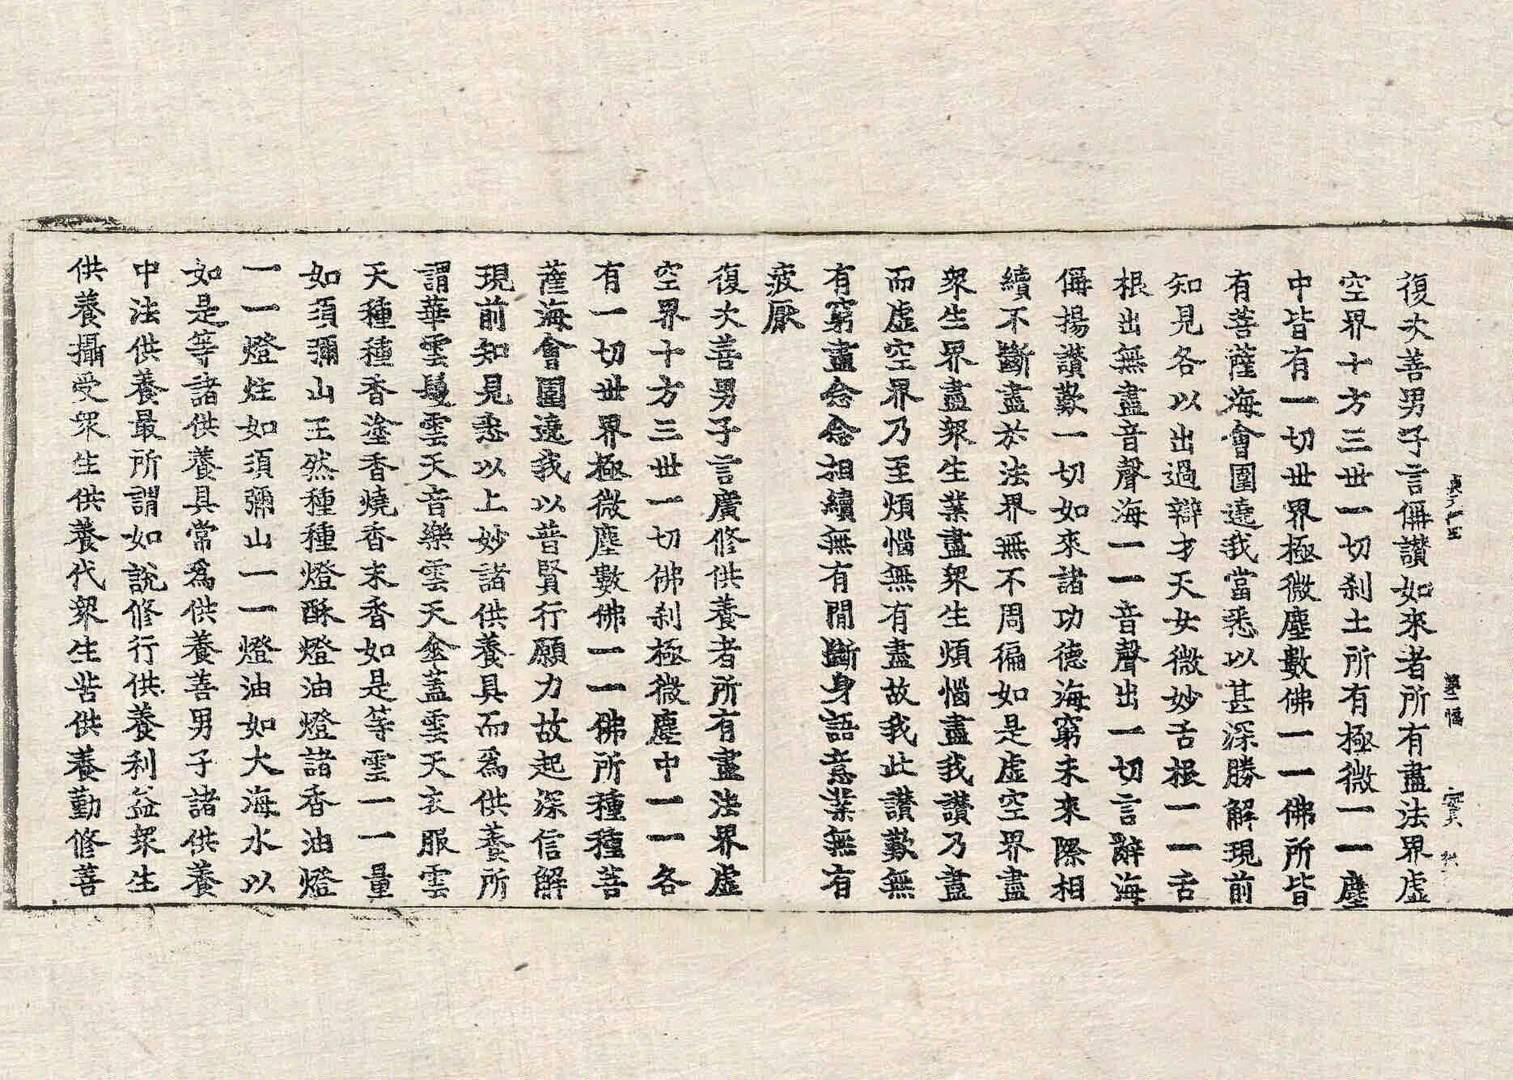 復次善男子言偁讚如來者所有盡法界虛
空界十方三世一切刹土所有極微一一塵
中皆有一切世界極微塵數佛一一佛所皆
有菩薩海會圍遶我當悉以甚深勝解現前
知見各以出過辯才天女微妙舌根一一舌
根出無盡音聲海一一音聲出一切言辭海
偁揚讚歎一切如來諸功德海窮未來際相
續不斷盡於法界無不周徧如是虛空界盡
衆生界盡衆生業盡衆生煩惱盡我讚乃盡
而虛空界乃至煩惱無有盡故我此讚歎無
有窮盡念念相續無有間斷身語意業無有
疲厭
復次善男子言廣修供養者所有盡法界虛
空界十方三世一切佛刹極微塵中一一各
有一切世界極微塵數佛一一佛所種種菩
薩海會圍遶我以普賢行願力故起深信解
現前知見悉以上妙諸供養具而爲供養所
謂華雲鬘雲天音樂雲天傘蓋雲天衣服雲
天種種香塗香燒香末香如是等雲一一量
如須彌山王然種種燈酥燈油燈諸香油燈
一一燈炷如須彌山一一燈油如大海水以
如是等諸供養具常爲供養善男子諸供養
中法供養最所謂如說修行供養利益衆生
供養攝受衆生供養代衆生苦供養勤修善